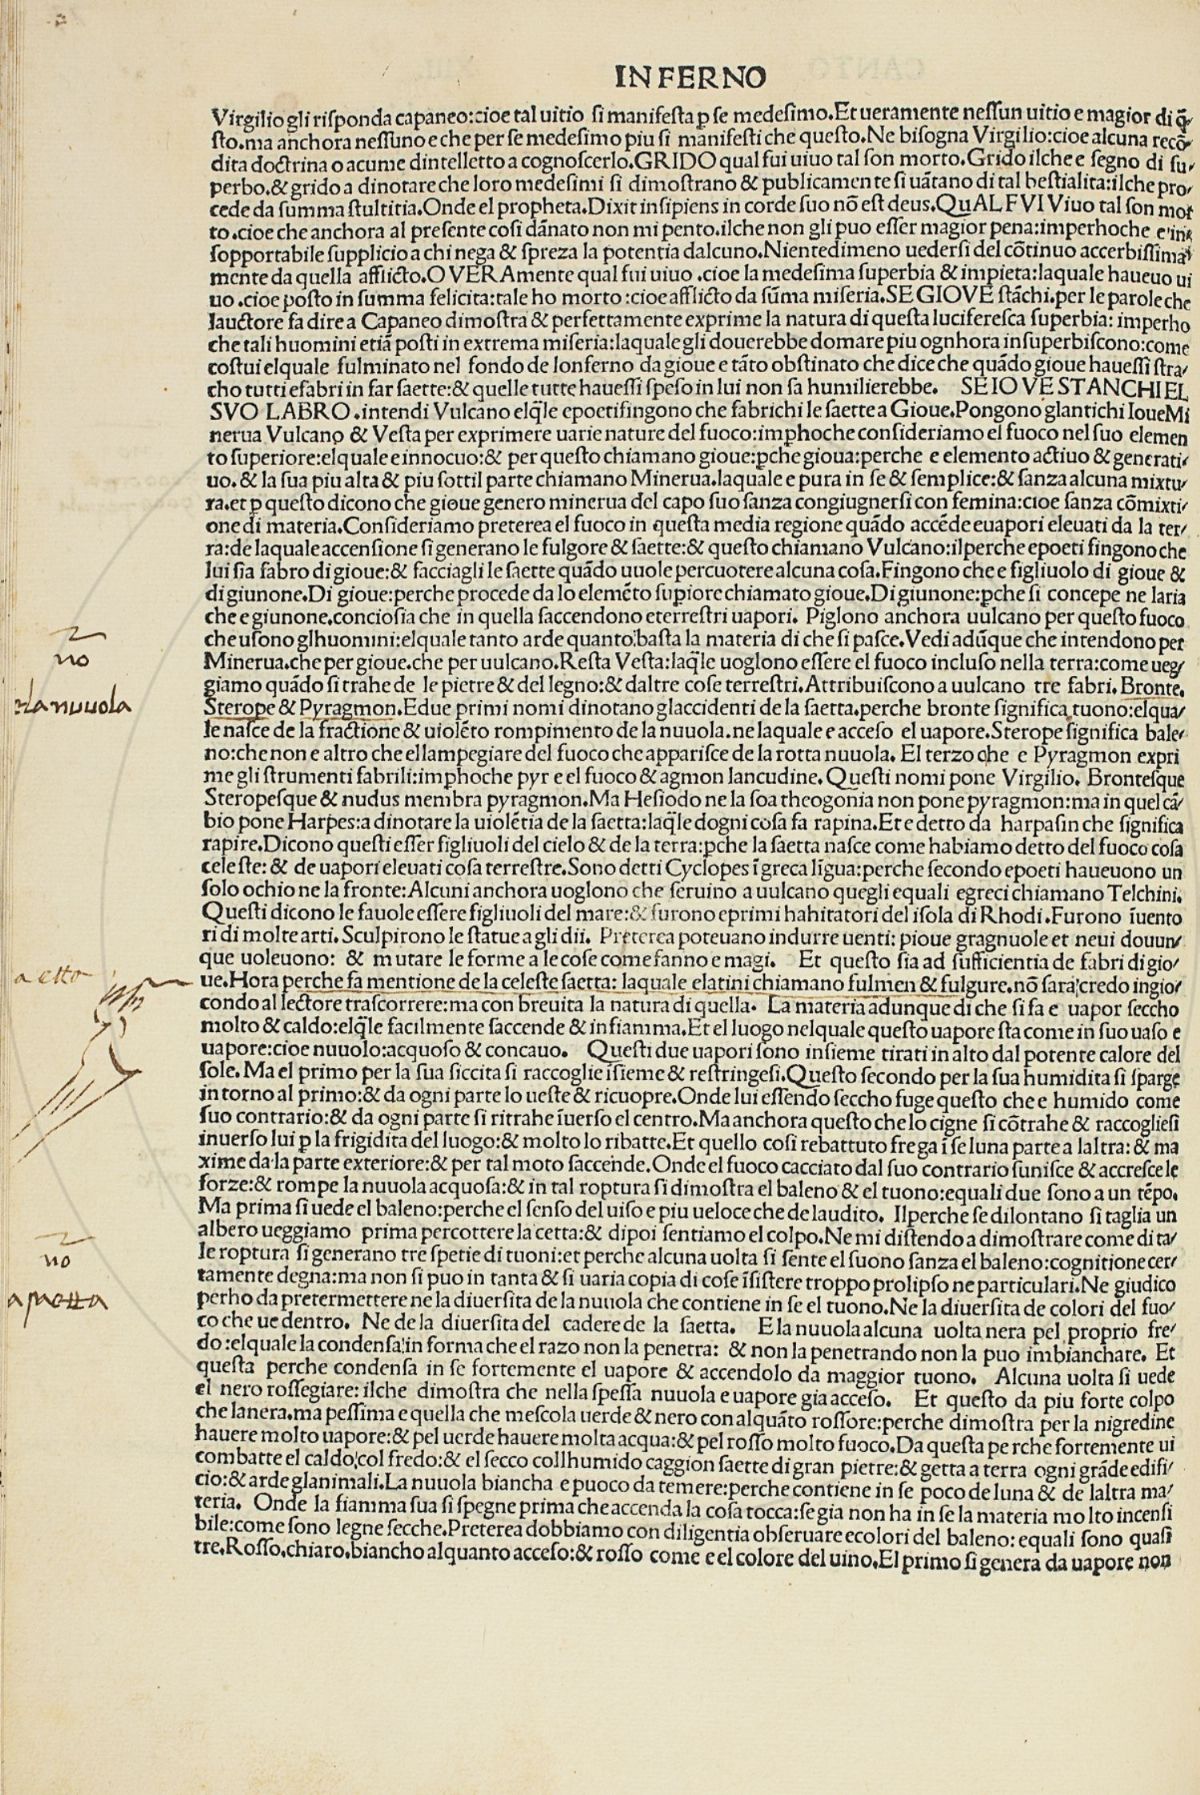 INFERNO
Virgilio gli risponda capaneo:cioe tal uitio si manifesta p̱ se medesimo.Et ueramente nessun uitio e magior di q̄/
sto.ma anchora nessuno e che per se medesimo piu si manifesti che questo.Ne bisogna Virgilio:cioe alcuna recō/
dita doctrina o acume dintelletto a cognoscerlo.GRIDO qual fui uiuo tal son morto.Grido ilche e segno di su/
perbo.& grido a dinotare che loro medesimi si dimostrano & publicamente si uātano di tal bestialita:ilche pro/
cede da summa stultitia.Onde el propheta.Dixit insipiens in corde suo nō est deus.QuAL FVI Viuo tal son mor
to.cioe che anchora al presente cosi dānato non mi pento.ilche non gli puo esser magior pena:imperhoche e in
sopportabile supplicio a chi nega & spreza la potentia dalcuno.Nientedimeno uedersi del cōtinuo accerbissima
mente da quella afflicto.OVERAmente qual fui uiuo .cioe la medesima superbia & impieta:laquale haueuo ui
uo .cioe posto in summa felicita:tale ho morto :cioe afflicto da sūma miseria.SE GIOVE stāchi.per le parole che
lauctore fa dire a Capaneo dimostra & perfettamente exprime la natura di questa luciferesca superbia: imperho
che tali huomini etiā posti in extrema miseria:laquale gli douerebbe domare piu ognhora insuperbiscono:come
costui elquale fulminato nel fondo de lonferno da gioue e tāto obstinato che dice che quādo gioue hauessi stra/
cho tutti e fabri in far saette:& quelle tutte hauessi speso in lui non sa humilierebbe. SE IOVE STANCHI EL
SVO LABRO .intendi Vulcano elq̄le e poeti fingono che fabrichi le saette a Gioue.Pongono glantichi Ioue Mi
nerua Vulcano & Vesta per exprimere uarie nature del fuoco:imp̱hoche consideriamo el fuoco nel suo elemen
to superiore:elquale e innocuo:& per questo chiamano gioue:p̱che gioua:perche e elemento actiuo & generati/
uo.& la sua piu alta & piu sottil parte chiamano Minerua.laquale e pura in se & semplice:& sanza alcuna mixtu/
ra.et p̱ questo dicono che gioue genero minerua del capo suo sanza congiugnersi con femina:cioe sanza cōmixti/
one di materia.Consideriamo preterea el fuoco in questa media regione quādo accēde e uapori eleuati da la ter/
ra:de laquale accensione si generano le fulgore & saette:& questo chiamano Vulcano:ilperche e poeti fingono che
lui sia fabro di gioue:& facciagli le saette quādo uuole percuotere alcuna cosa.Fingono che e figliuolo di gioue &
di giunone.Di gioue:perche procede da lo elemēto sup̱iore chiamato gioue.Di giunone:p̱che si concepe ne laria
che e giunone.conciosia che in quella saccendono e terrestri uapori. Piglono anchora uulcano per questo fuoco
che usono glhuomini:elquale tanto arde quanto basta la materia di che si pasce.Vedi adūque che intendono per
Minerua.che per gioue.che per uulcano.Resta Vesta:laq̄le uoglono essere el fuoco incluso nella terra:come ueg/
giamo quādo si trahe de le pietre & del legno:& daltre cose terrestri.Attribuiscono a uulcano tre fabri.Bronte.
Sterope & Pyragmon.E due primi nomi dinotano glaccidenti de la saetta.perche bronte significa tuono:elqua/
le nasce de la fractione & uiolēto rompimento de la nuuola.ne laquale e acceso el uapore.Sterope significa bale/
no:che non e altro che el lampegiare del fuoco che apparisce de la rotta nuuola. El terzo che e Pyragmon expri
me gli strumenti fabrili:imp̱hoche pyr e el fuoco & agmon lancudine.Questi nomi pone Virgilio. Brontesque
Steropesque & nudus membra pyragmon.Ma Hesiodo ne la soa theogonia non pone pyragmon:ma in quel cā/
bio pone Harpes:a dinotare la uiolētia de la saetta:laq̄le dogni cosa fa rapina.Et e detto da harpasin che significa
rapire.Dicono questi esser figliuoli del cielo & de la terra:p̱che la saetta nasce come habiamo detto del fuoco cosa
celeste:& de uapori eleuati cosa terrestre.Sono detti Cyclopes ī greca līgua:perche secondo e poeti haueuono un
solo ochio ne la fronte:Alcuni anchora uoglono che seruino a uulcano quegli equali egreci chiamano Telchini.
Questi dicono le fauole essere figliuoli del mare:& furono e primi hahitatori del isola di Rhodi.Furono īuento
ri di molte arti.Sculpirono le statue a gli dii. Preterea poteuano indurre uenti: pioue gragnuole et neui douun/
que uoleuono: & mutare le forme a le cose come fanno e magi. Et questo sia ad sufficientia de fabri di gio/
ue.Hora perche fa mentione de la celeste saetta: laquale e latini chiamano fulmen & fulgure.nō sara credo ingio/
condo al lectore trascorrere:ma con breuita la natura di quella. La materia adunque di che si fa e uapor seccho
molto & caldo:elq̄le facilmente saccende & infiamma.Et el luogo nelquale questo uapore sta come in suo uaso e
uapore:cioe nuuolo:acquoso & concauo. Questi due uapori sono insieme tirati in alto dal potente calore del
sole.Ma el primo per la sua siccita si raccoglie īsieme & restringesi.Questo secondo per la sua humidita si sparge
in torno al primo:& da ogni parte lo ueste & ricuopre.Onde lui essendo seccho fuge questo che e humido come
suo contrario:& da ogni parte si ritrahe īuerso el centro.Ma anchora questo che lo cigne si cōtrahe & raccogliesi
inuerso lui p̱ la frigidita del luogo:& molto lo ribatte.Et quello cosi rebattuto frega ī se luna parte a laltra:& ma
xime da la parte exteriore:& per tal moto saccende.Onde el fuoco cacciato dal suo contrario sunisce & accresce le
forze:& rompe la nuuola acquosa:& in tal roptura si dimostra el baleno & el tuono:equali due sono a un tēpo.
Ma prima si uede el baleno:perche el senso del uiso e piu ueloce che de laudito. Ilperche se dilontano si taglia un
albero ueggiamo prima percottere la cetta:& dipoi sentiamo el colpo.Ne mi distendo a dimostrare come di ta/
le roptura si generano tre spetie di tuoni:et perche alcuna uolta si sente el suono sanza el baleno:cognitione cer/
tamente degna:ma non si puo in tanta & si uaria copia di cose īsistere troppo prolipso ne particulari.Ne giudico
perho da pretermettere ne la diuersita de la nuuola che contiene in se el tuono.Ne la diuersita de colori del fuo/
co che ue dentro. Ne de la diuersita del cadere de la saetta. E la nuuola alcuna uolta nera pel proprio fre/
do:elquale la condensa in forma che el razo non la penetra: & non la penetrando non la puo imbianchare. Et
questa perche condensa in se fortemente el uapore & accendolo da maggior tuono. Alcuna uolta si uede
el nero rossegiare: ilche dimostra che nella spessa nuuola e uapore gia acceso. Et questo da piu forte colpo
che lanera.ma pessima e quella che mescola uerde & nero con alquāto rossore:perche dimostra per la nigredine
hauere molto uapore:& pel uerde hauere molta acqua:& pel rosso molto fuoco.Da questa perche fortemente ui
combatte el caldo col fredo:& el secco collhumido caggion saette di gran pietre:& getta a terra ogni grāde edifi/
cio:& arde glanimali.La nuuola biancha e puoco da temere:perche contiene in se poco de luna & de laltra ma/
teria. Onde la fiamma sua si spegne prima che accenda la cosa tocca:se gia non ha in se la materia molto incensi
bile:come sono legne secche.Preterea dobbiamo con diligentia obseruare e colori del baleno: equali sono quasi
tre.Rosso.chiaro.biancho alquanto acceso:& rosso come e el colore del uino.El primo si genera da uapore non
no
nuuola
no